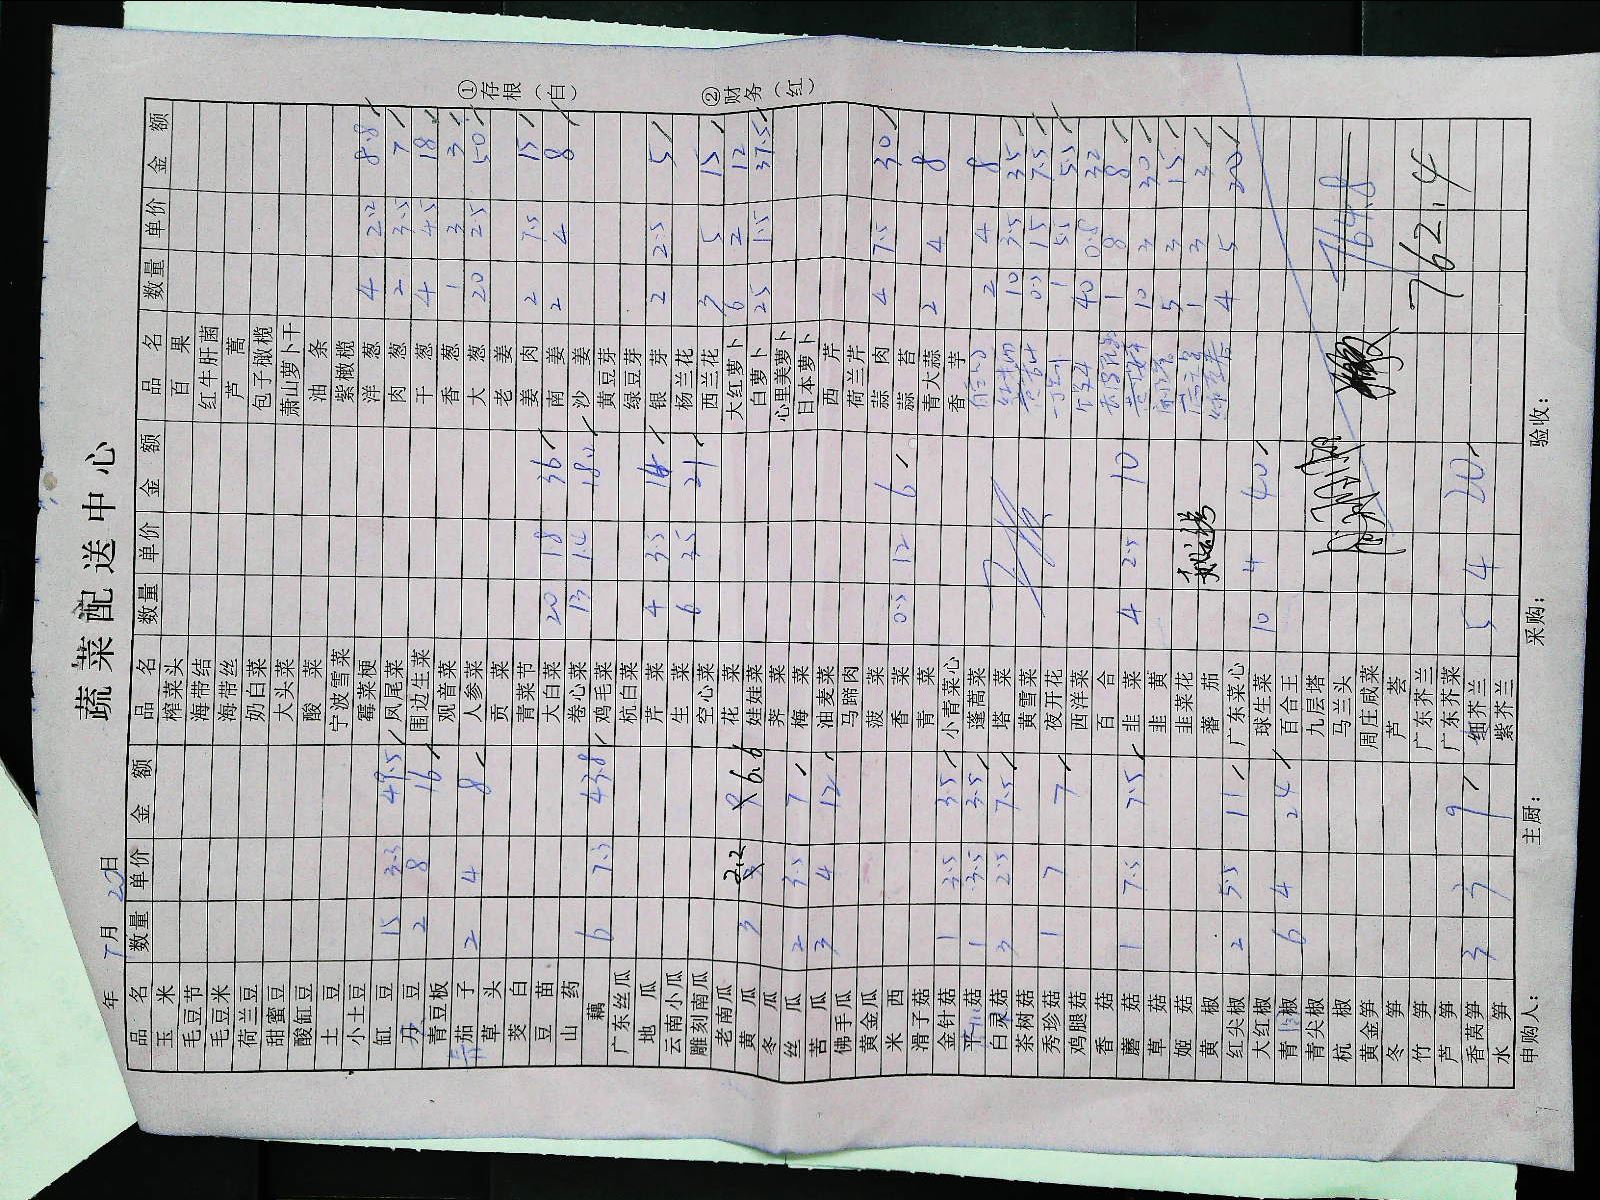 蔬菜配送中心
年 7月 20日
品名 数量 单价 金额 品名 数量 单价 金额 品名 数量 单价 金额
玉米 榨菜头 百果
毛豆节 海带结 红牛肝菌
毛豆米 海带丝 芦蒿
荷兰豆 奶白菜 包子橄榄
甜蜜豆 大头菜 萧山萝卜干
酸缸豆 酸菜 油条
土豆 宁波雪菜 紫橄榄
小土豆 霉菜梗 洋葱 4 2.2 8.8
缸豆 15 3.3 49.5 凤尾菜 肉葱 2 3.5 7
刀豆 2 8 16 围边生菜 干葱 4 4.5 18
青豆板 观音菜 香葱 1 3 3
茄子 2 4 8 人参菜 大葱 20 2.5 50
草头 贡菜 老姜
茭白 青菜节 姜肉 2 7.5 15
豆苗 大白菜 20 1.8 36 南姜 2 4 8
山药 卷心菜 13 1.4 18.2 沙姜
藕 6 7.3 43.8 鸡毛菜 黄豆芽
广东丝瓜 杭白菜 绿豆芽
地瓜 芹菜 4 3.5 14 银芽 2 2.5 5
云南小瓜 生菜 6 3.5 21 杨兰花
雕刻南瓜 空心菜 西兰花 3 5 15
老南瓜 花菜 大红萝卜 6 2 12
黄瓜 3 2.2 6.6 娃娃菜 白萝卜 25 1.5 37.5
冬瓜 荠菜 心里美萝卜
丝瓜 2 3.5 7 梅菜 日本萝卜
苦瓜 3 4 12 油麦菜 西芹
佛手瓜 马蹄肉 荷兰芹
黄金瓜 菠菜 蒜肉 4 7.5 30
米西 香菜 0.5 12 6 蒜苔
滑子菇 青菜 青大蒜 2 4 8
金针菇 1 3.5 3.5 小青菜心 香芋
平菇 1 3.5 3.5 蓬蒿菜 2 4 8
白灵菇 3 2.5 7.5 塔菜 10 3.5 35
茶树菇 黄雪菜 0.5 15 7.5
秀珍菇 1 7 7 夜开花 1 5.5 5.5
鸡腿菇 西洋菜 40 0.8 32
香菇 百合 1 8 8
蘑菇 1 7.5 7.5 韭菜 4 2.5 10 10 3 30
草菇 韭黄 5 3 15
姬菇 韭菜花 1 3 3
黄椒 蕃茄 4 5 20
红尖椒 2 5.5 11 广东菜心
大红椒 球生菜 10 4 40
青椒 6 4 24 百合王
青尖椒 九层塔
杭椒 马兰头 764.8
黄金笋 周庄咸菜
冬笋 芦荟
竹笋 广东芥兰 762.4
芦笋 广东芥菜
香莴笋 3 3 9 细芥兰 5 4 20
水笋 紫芥兰
申购人: 主厨: 采购: 验收:
①存根(白)
②财务(红)